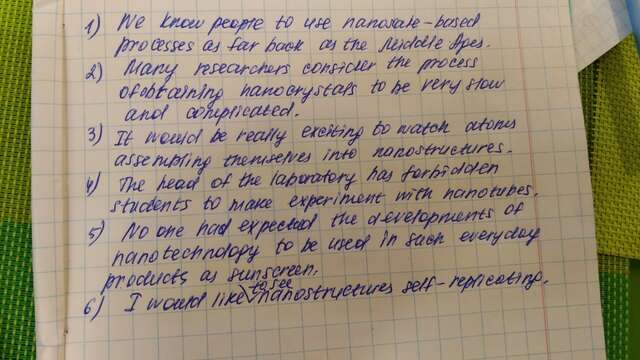 1) We know people to use nanoscale-based
processes as far back as the Middle Ages.
2) Many researchers consider the process
of obtaining nanocrystals to be very slow
and complicated.
3) It would be really exciting to watch atoms
assempling themselves into nanostructures.
4) The head of the laboratory has forbidden
students to make experiment with nanotubes.
5) No one had expected the developments of
nanotechnology to be used in such everyday
products as sunscreen.
6) I would like to see nanostructures self-replicating.